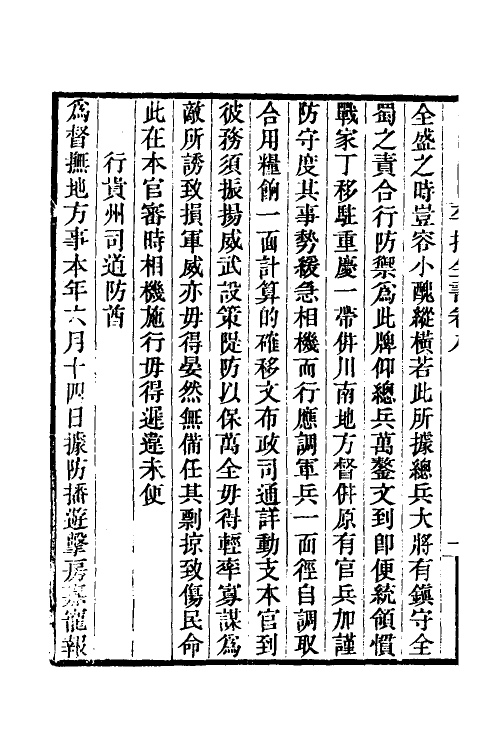 平播全書卷八
一
全盛之時豈容小醜縱橫若此所據總兵大將有鎮守全
蜀之責合行防禦爲此牌仰總兵萬鏊文到卽便統領慣
戰家丁移駐重慶一帶併川南地方督併原有官兵加謹
防守度其事勢緩急相機而行應調軍兵一面徑自調取
合用糧餉一面計算的確移文布政司通詳動支本官到
彼務須振揚威武設策隄防以保萬全毋得輕率寡謀爲
敵所誘致損軍威亦毋得晏然無備任其剽掠致傷民命
此在本官審時相機施行毋得遲違未便
行貴州司道防酋
爲督撫地方事本年六月十四日據防播遊擊房嘉寵報